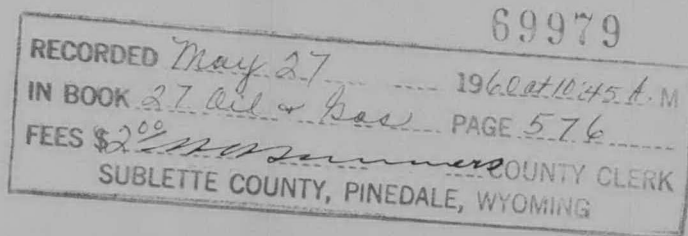 69979
RECORDED May 27 1960 at 10:45 A. M
IN BOOK 27 Oil & Gas PAGE 576
FEES $2.00 COUNTY CLERK
SUBLETTE COUNTY, PINEDALE, WYOMING